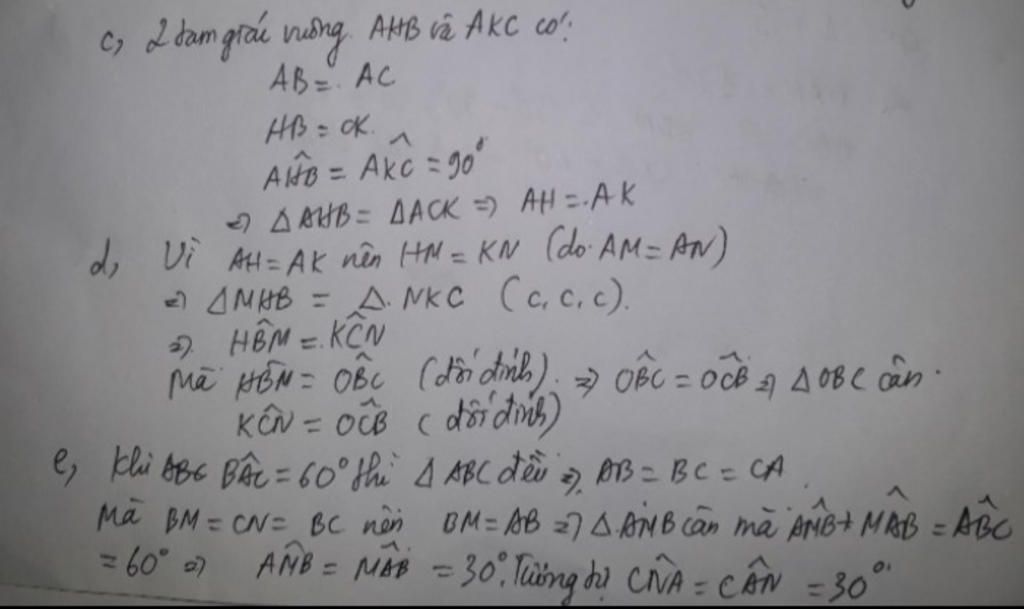 c, 2 tam giác vuông. AHB và AKC có:
AB = AC
HB = CK.
AĤB = AK̂C = 90°
=> ΔAHB = ΔACK => AH = AK
d, Vì AH = AK nên HM = KN (do AM = AN)
=> ΔMHB = Δ NKC (c, c, c).
=> HB̂M = KĈN
Mà HB̂M = OB̂C (đối đỉnh) => OB̂C = OĈB => ΔOBC cân.
KĈN = OĈB (đối đỉnh)
e, Khi BÂC = 60° thì Δ ABC đều => AB = BC = CA.
Mà BM = CN = BC nên BM = AB => ΔAMB cân mà AM̂B + MÂB = AB̂C
= 60° => AM̂B = MÂB = 30°. Tương tự CN̂A = CÂN = 30°.